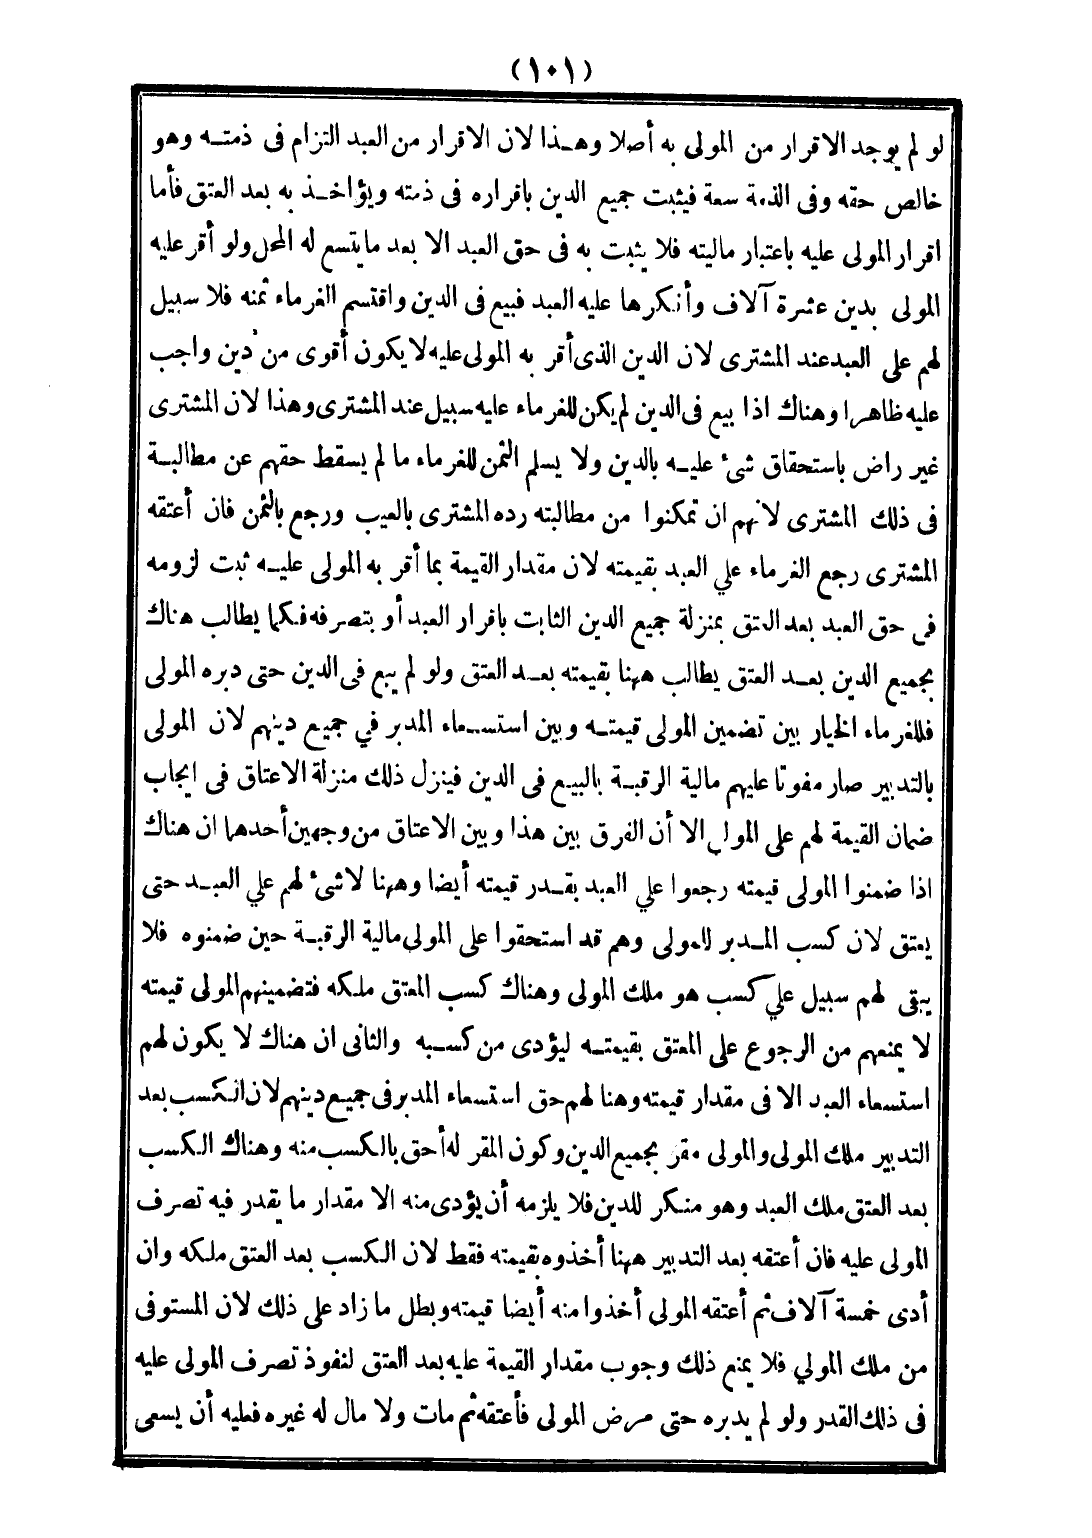 (١٠١)
لو لم يوجد الاقرار من المولى به أصلا وهذا لان الاقرار من العبد التزام فى ذمته وهو
خالص حقه وفى الذمة سعة فيثبت جميع الدين باقراره فى ذمته ويؤاخذ به بعد العتق فأما
اقرار المولى عليه باعتبار ماليته فلا يثبت به فى حق العبد الا بعد ما يتسع له المحل ولو أقر عليه
المولى بدين عشرة آلاف وأنكرها عليه العبد فبيع فى الدين واقتسم الغرماء ثمنه فلا سبيل
لهم على العبد عند المشترى لان الدين الذى أقر به المولى عليه لا يكون أقوى من دين واجب
عليه ظاهرا وهناك اذا بيع فى الدين لم يكن للغرماء عليه سبيل عند المشترى وهذا لان المشترى
غير راض باستحقاق شئ عليه بالدين ولا يسلم الثمن للغرماء ما لم يسقط حقهم عن مطالبة
فى ذلك المشترى لانهم ان تمكنوا من مطالبته رده المشترى بالعيب ورجع بالثمن فان أعتقه
المشترى رجع الغرماء علي العبد بقيمته لان مقدار القيمة بما أقر به المولى عليه ثبت لزومه
فى حق العبد بعد العتق بمنزلة جميع الدين الثابت باقرار العبد أو بتصرفه فكما يطالب هناك
بجميع الدين بعد العتق يطالب ههنا بقيمته بعد العتق ولو لم يبع فى الدين حتى دبره المولى
فللغرماء الخيار بين تضمين المولى قيمته وبين استسعاء المدبر في جميع دينهم لان المولى
بالتدبير صار مفوتا عليهم مالية الرقبة بالبيع فى الدين فينزل ذلك منزلة الاعتاق فى ايجاب
ضمان القيمة لهم على المولى الا أن الفرق بين هذا وبين الاعتاق من وجهين أحدهما ان هناك
اذا ضمنوا المولى قيمته رجعوا علي العبد بقدر قيمته أيضا وههنا لا شئ لهم علي العبد حتى
يعتق لان كسب المدبر للمولى وهم قد استحقوا على المولى مالية الرقبة حين ضمنوه فلا
يبقى لهم سبيل علي كسب هو ملك المولى وهناك كسب المعتق ملكه فتضمينهم المولى قيمته
لا يمنعهم من الرجوع على المعتق بقيمته ليؤدى من كسبه والثانى ان هناك لا يكون لهم
استسعاء العبد الا فى مقدار قيمته وهنا لهم حق استسعاء المدبر فى جميع دينهم لان الكسب بعد
التدبير ملك المولى والمولى مقر بجميع الدين وكون المقر له أحق بالكسب منه وهناك الكسب
بعد العتق ملك العبد وهو منكر للدين فلا يلزمه أن يؤدى منه الا مقدار ما يقدر فيه تصرف
المولى عليه فان أعتقه بعد التدبير ههنا أخذوه بقيمته فقط لان الكسب بعد العتق ملكه وان
أدى خمسة آلاف ثم أعتقه المولى أخذوا منه أيضا قيمته وبطل ما زاد على ذلك لان المستوفى
من ملك المولي فلا يمنع ذلك وجوب مقدار القيمة عليه بعد العتق لنفوذ تصرف المولى عليه
فى ذلك القدر ولو لم يدبره حتى مرض المولى فأعتقه ثم مات ولا مال له غيره فعليه أن يسعى